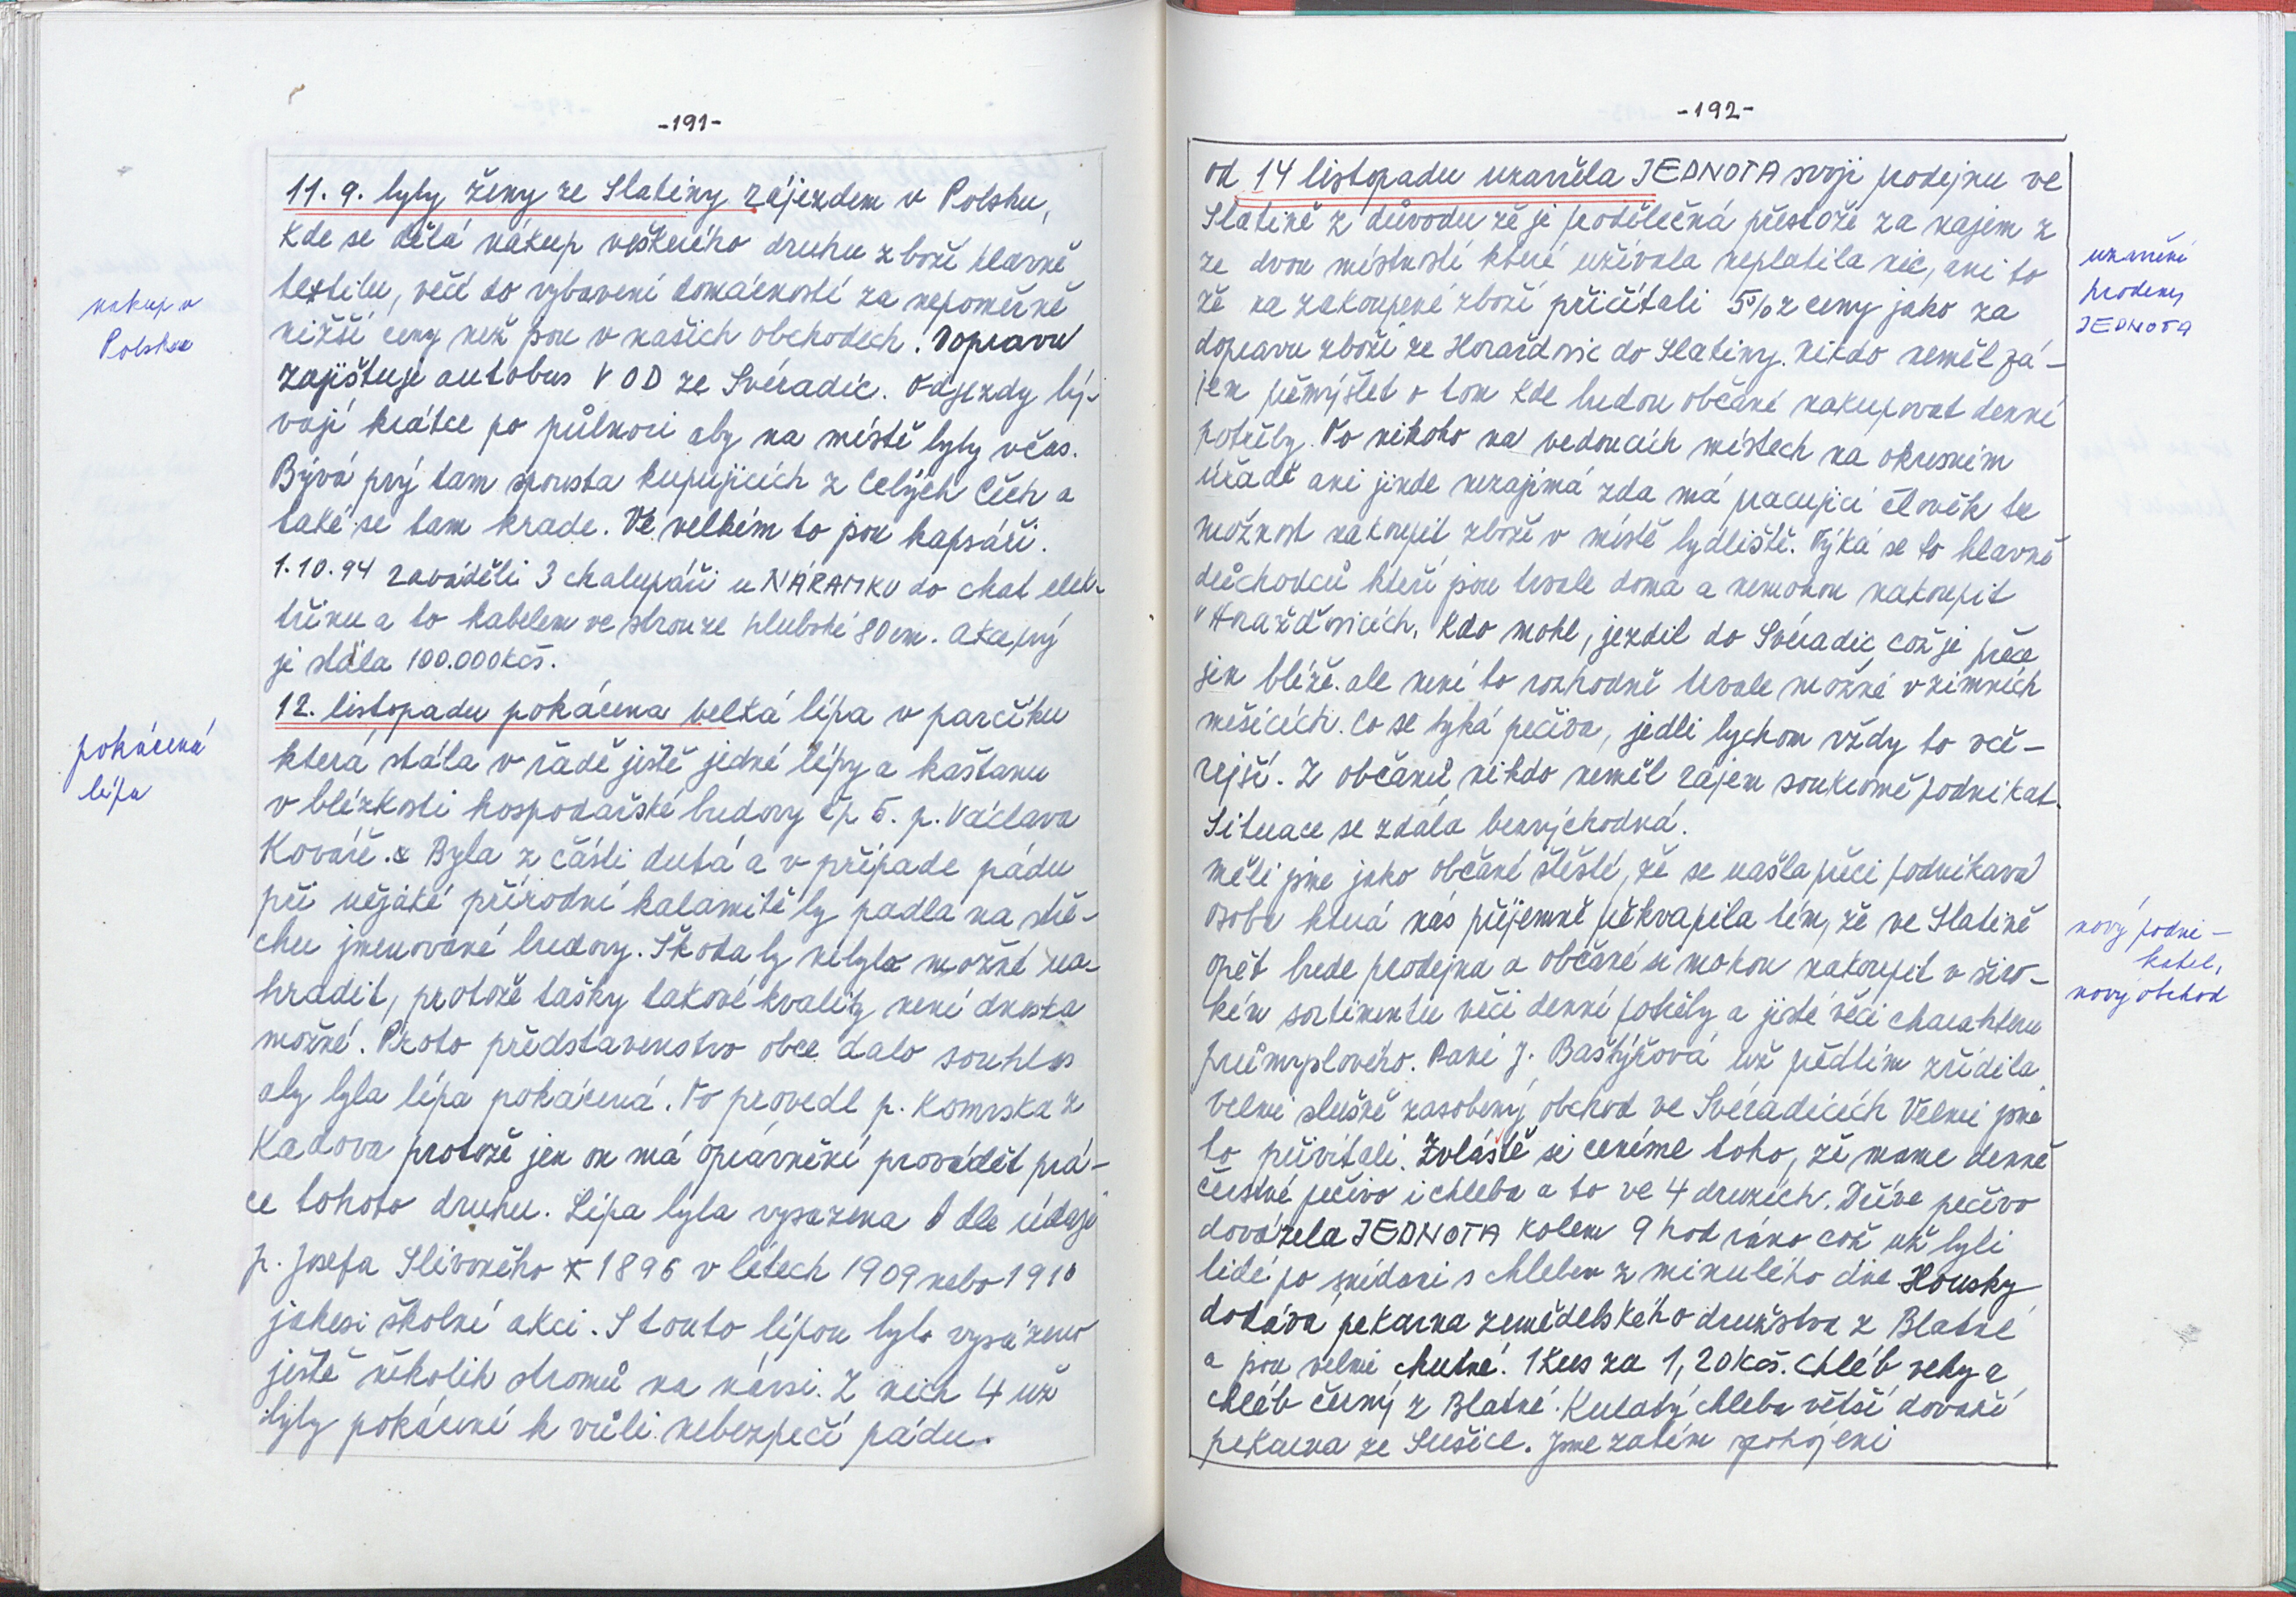 -191-
11. 9. byly ženy ze Slatiny zájezdem v Polsku,
kde se dělá nákup veškerého druhu zboží hlavně
textilu, věcí do vybavení domácností za nepoměrně
nižší ceny než jsou v našich obchodech. Dopravu
zajištuje autobus V O D ze Svéradic. Odjezdy bý-
vají krátce po půlnoci aby na místě byly včas.
Bývá prý tam spousta kupujících z celých Čech a
také se tam krade. Ve velkém to jsou kapsáři.
1.10.94 zaváděli 3 chalupáři u NÁRAMKU do chat elek-
třinu a to kabelem ve strouze hluboké 80 cm. Akce prý
je stála 100.000 Kčs.
12. listopadu pokácena velká lípa v parčíku
která stála v řadě ještě jedné lípy a kaštanu
v blízkosti hospodářské budovy čp 5. p. Václava
Kováře. Byla z části dutá a v případe pádu
při nějaké přírodní kalamitě by padla na stře-
chu jmenované budovy. Škoda by nebyla možné na-
hradit, protože tašky takové kvality není dneska
možné. Proto představenstvo obce dalo souhlas
aby byla lípa pokácená. To provedl p. Komrska z
Kadova protože jen on má oprávnění provádět prá-
ce tohoto druhu. Lípa byla vysazena dle údaje
p. Josefa Slivoného * 1896 v létech 1909 nebo 1910
jakesi školní akci. S touto lípou bylo vysázeno
ještě několik stromů na návsi. Z nich 4 už
byly pokácené k vůli nebezpečí pádu.
nákup v
Polsku
pokácená
lípa
-192-
od 14 listopadu uzavřela JEDNOTA svoji prodejnu ve
Slatině z důvodu že je prodělečná přestože za najem z
ze dvou místností které užívala neplatila nic, ani to
že na zakoupené zboží přičítali 5% z ceny jako za
dopravu zboží ze Horažďovic do Slatiny. Nikdo neměl zá-
jem přemýšlet o tom kde budou občané nakupovat denní
potřeby. To nikoho na vedoucích místech na okresním
úřadě ani jinde nezajímá zda má pracující člověk tu
možnost nakoupit zboží v místě bydliště. Týká se to hlavně
důchodců kteří jsou trvale doma a nemohou nakoupit
v Horažďovicích. Kdo mohl, jezdil do Svéradic, což je přece
jen blíže. ale není to rozhodně trvale možné v zimních
mešících. Co se týká pečiva, jedli bychom vždy to vče-
rejší. Z občanů nikdo neměl zájem soukromě podnikat.
Situace se zdála bezvýchodná.
měli jsme jako občané štěstí, že se našla přeci podnikavá
osoba která nás příjemně překvapila tím, že ve Slatině
opět bude prodejna a občané si mohou nakoupit v širo-
kém sortimentu věci denní potřeby a jisté věci charakteru
průmyslového. Paní J. Baštýřová už předtím zřídila
velmi slušně zasobený obchod ve Svéradicích Velmi jsme
to přivítali. Zvláště si ceníme toho, že mame denně
čerstvé pečivo i chleba a to ve 4 druzích. Dříve pečivo
dovážela JEDNOTA kolem 9 hod ráno což už byli
lidé po snídani s chlebem z minulého dne Housky
dodává pekarna zemědelského družstva z Blatné
a jsou velmi chutné. 1 kus za 1,20 Kčs. Chléb veky a
chléb černý z Blatné. Kulatý chleba větší dováží
pekarna ze Sušice. Jsme zatím spokojeni
uzavření
prodejny
JEDNOTA
nový podni-
katel,
nový obchod